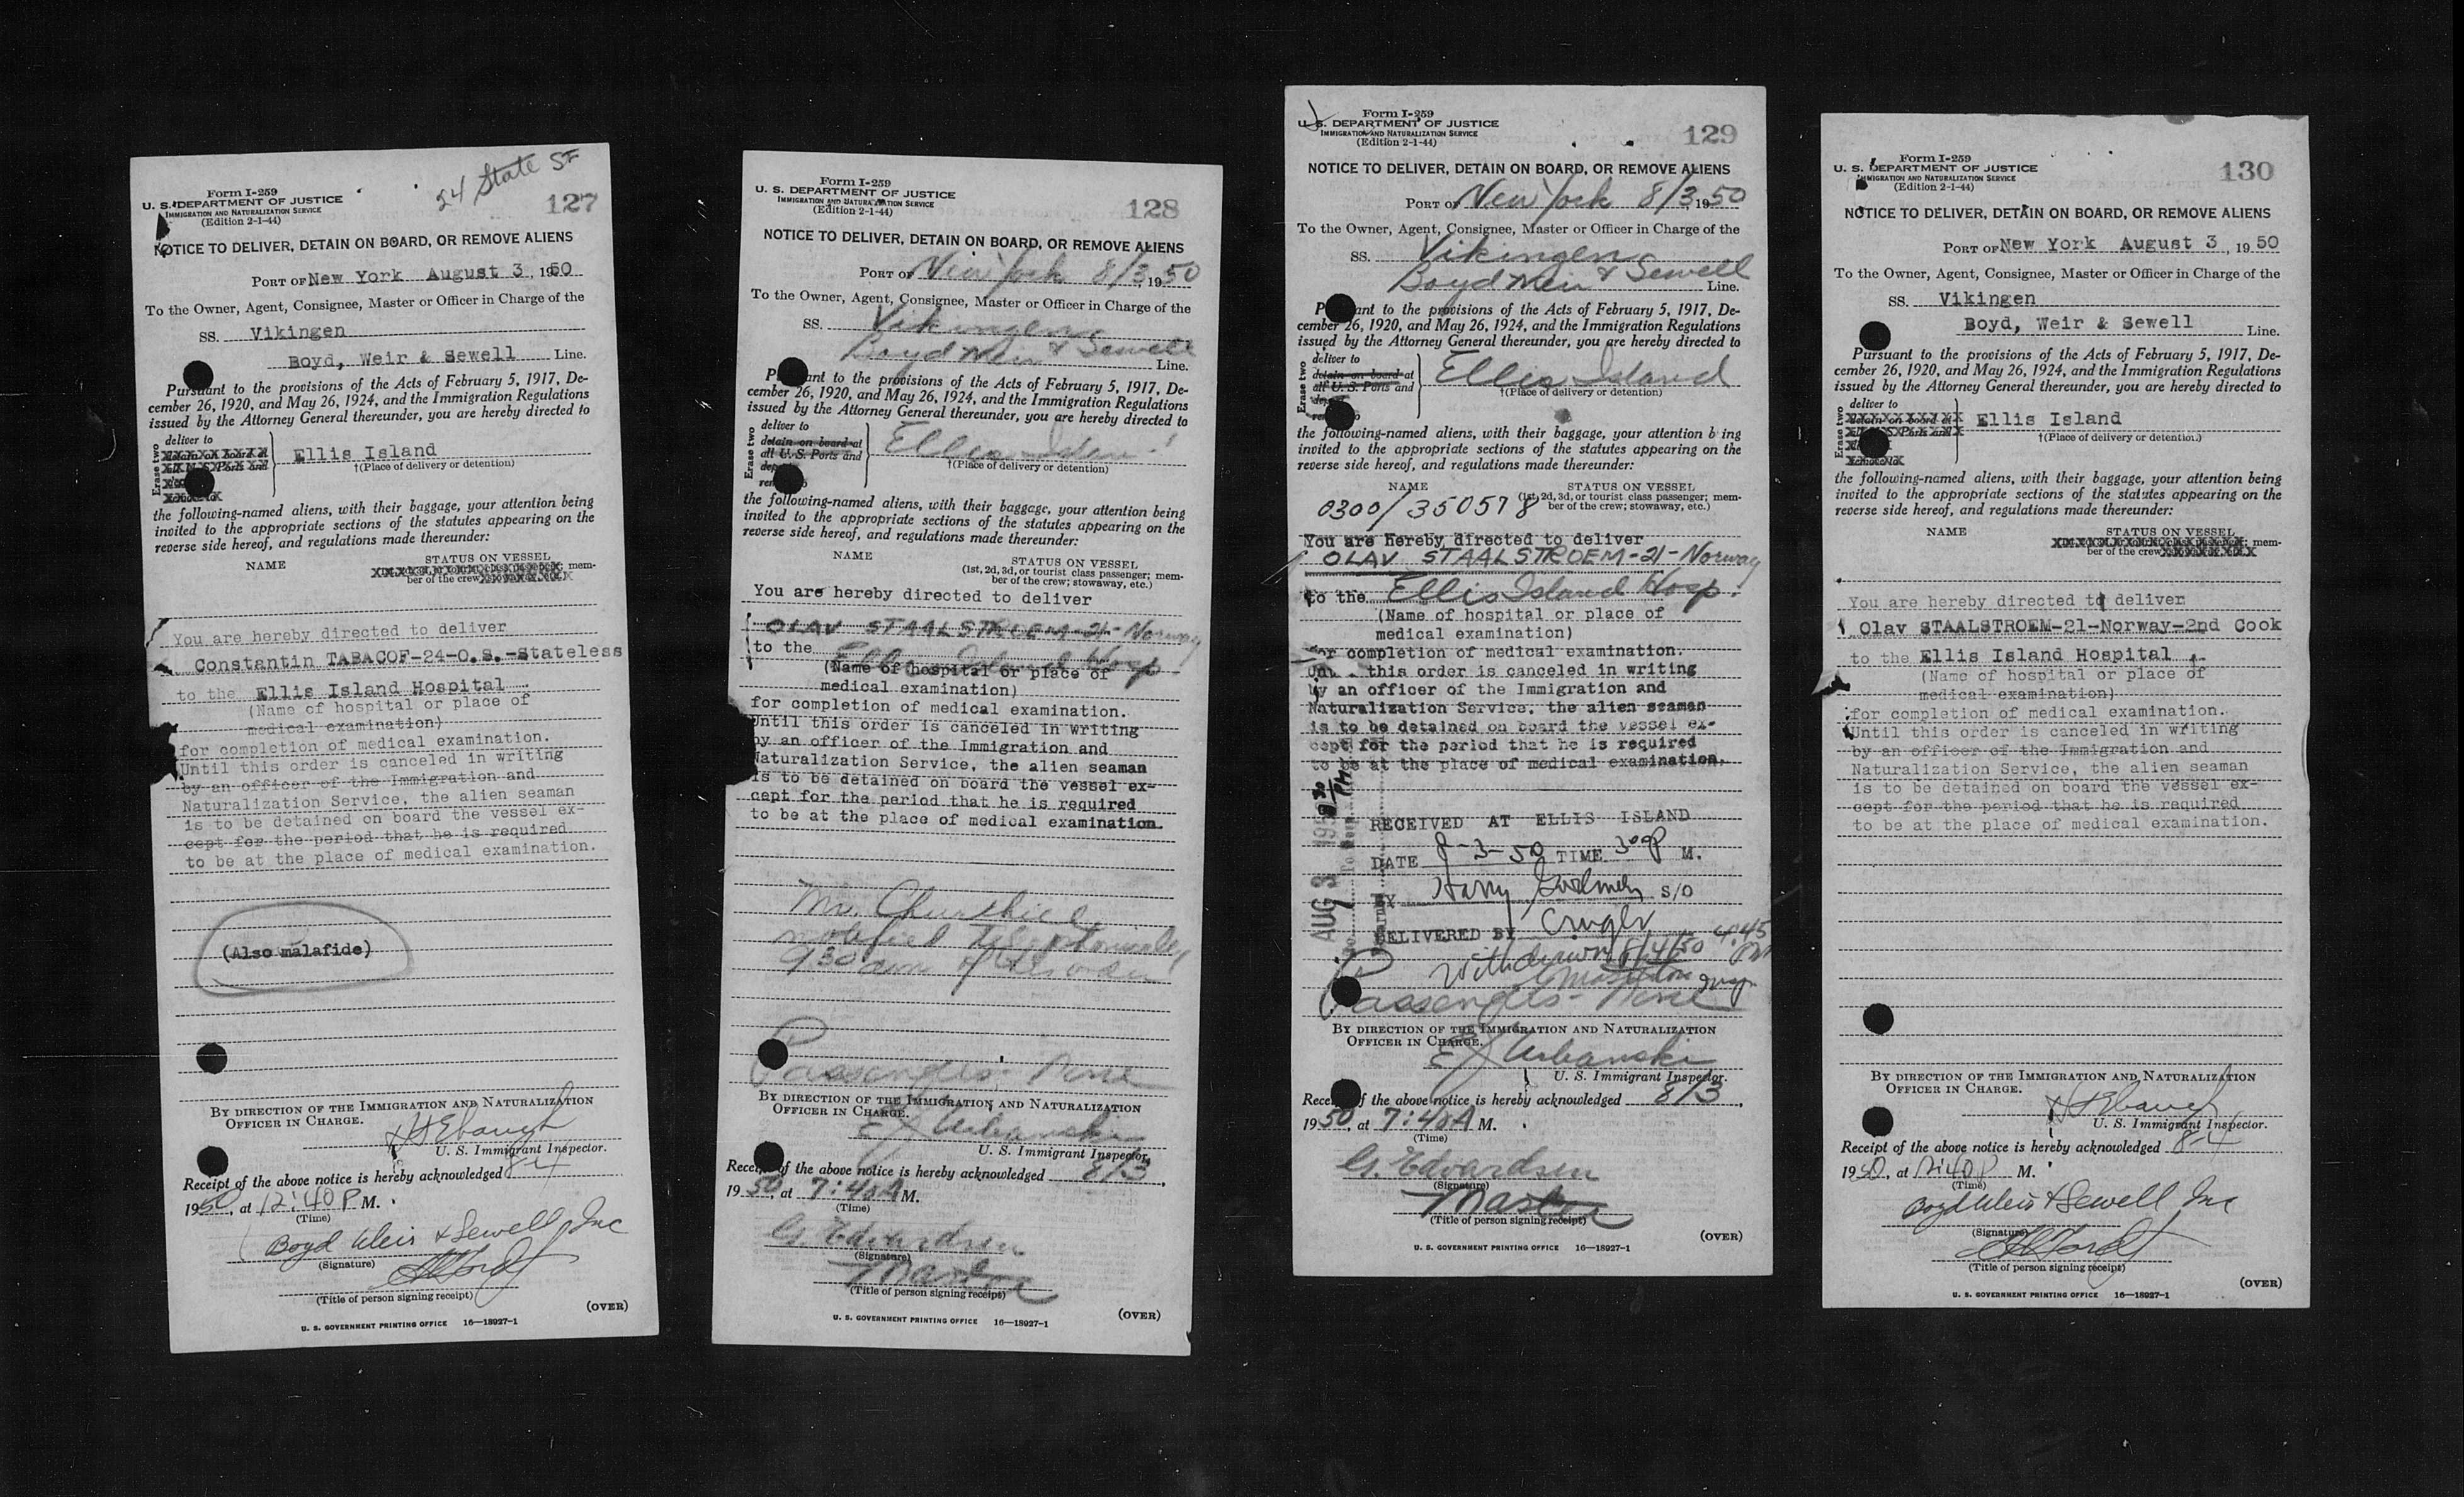 54 State St
Form I-259
U. S. DEPARTMENT OF JUSTICE
IMMIGRATION AND NATURALIZATION SERVICE
(Edition 2-1-44)
127
NOTICE TO DELIVER, DETAIN ON BOARD, OR REMOVE ALIENS
PORT OF New York August 3, 1950
To the Owner, Agent, Consignee, Master or Officer in Charge of the
SS. Vikingen
Boyd, Weir & Sewell Line.
Pursuant to the provisions of the Acts of February 5, 1917, De-
cember 26, 1920, and May 26, 1924, and the Immigration Regulations
issued by the Attorney General thereunder, you are hereby directed to
Erase two
deliver to
detain on board at
all U.S. Ports and
Ellis Island
†(Place of delivery or detention)
the following-named aliens, with their baggage, your attention being
invited to the appropriate sections of the statutes appearing on the
reverse side hereof, and regulations made thereunder:
NAME
STATUS ON VESSEL
mem-
ber of the crew
You are hereby directed to deliver
Constantin TABACOF-24-O.S.-Stateless
to the Ellis Island Hospital
(Name of hospital or place of
medical examination)
for completion of medical examination.
Until this order is canceled in writing
by an officer of the Immigration and
Naturalization Service, the alien seaman
is to be detained on board the vessel ex-
cept for the period that he is required
to be at the place of medical examination.
(Also malafide)
BY DIRECTION OF THE IMMIGRATION AND NATURALIZATION
OFFICER IN CHARGE.
H Ebaugh
U. S. Immigrant Inspector.
Receipt of the above notice is hereby acknowledged 8-4
1950, at 12:40 P M.
(Time)
Boyd Weir & Sewell, Inc
(Signature)
(Title of person signing receipt)
(OVER)
U. S. GOVERNMENT PRINTING OFFICE 16—18927-1
Form I-259
U. S. DEPARTMENT OF JUSTICE
IMMIGRATION AND NATURALIZATION SERVICE
(Edition 2-1-44)
128
NOTICE TO DELIVER, DETAIN ON BOARD, OR REMOVE ALIENS
PORT OF New York 8/3 1950
To the Owner, Agent, Consignee, Master or Officer in Charge of the
SS. Vikingen
Boyd Weir & Sewell
Line.
Pursuant to the provisions of the Acts of February 5, 1917, De-
cember 26, 1920, and May 26, 1924, and the Immigration Regulations
issued by the Attorney General thereunder, you are hereby directed to
Erase two
deliver to
detain on board at
all U.S. Ports and
Ellis Island
†(Place of delivery or detention)
the following-named aliens, with their baggage, your attention being
invited to the appropriate sections of the statutes appearing on the
reverse side hereof, and regulations made thereunder:
NAME
STATUS ON VESSEL
(1st, 2d, 3d, or tourist class passenger; mem-
ber of the crew; stowaway, etc.)
You are hereby directed to deliver
OLAV STAALSTROEM-21-Norway
to the Ellis Island Hosp
(Name of hospital or place of
medical examination)
for completion of medical examination.
Until this order is canceled in writing
by an officer of the Immigration and
Naturalization Service, the alien seaman
is to be detained on board the vessel ex-
cept for the period that he is required
to be at the place of medical examination.
Mr. Churchill
notified telephonically
9:30 am
Passengers - None
BY DIRECTION OF THE IMMIGRATION AND NATURALIZATION
OFFICER IN CHARGE.
E J Urbanski
U. S. Immigrant Inspector.
Receipt of the above notice is hereby acknowledged 8/3,
1950, at 7:40 A M.
(Time)
G. Edvardsen
(Signature)
Master
(Title of person signing receipt)
(OVER)
U. S. GOVERNMENT PRINTING OFFICE 16—18927-1
Form I-259
U. S. DEPARTMENT OF JUSTICE
IMMIGRATION AND NATURALIZATION SERVICE
(Edition 2-1-44)
129
NOTICE TO DELIVER, DETAIN ON BOARD, OR REMOVE ALIENS
PORT OF New York 8/3, 1950
To the Owner, Agent, Consignee, Master or Officer in Charge of the
SS. Vikingen
Boyd Weir & Sewell
Line.
Pursuant to the provisions of the Acts of February 5, 1917, De-
cember 26, 1920, and May 26, 1924, and the Immigration Regulations
issued by the Attorney General thereunder, you are hereby directed to
Erase two
deliver to
detain on board at
all U.S. Ports and
Ellis Island
†(Place of delivery or detention)
the following-named aliens, with their baggage, your attention being
invited to the appropriate sections of the statutes appearing on the
reverse side hereof, and regulations made thereunder:
NAME
STATUS ON VESSEL
(1st, 2d, 3d, or tourist class passenger; mem-
ber of the crew; stowaway, etc.)
0300/350578
You are hereby directed to deliver
OLAV STAALSTROEM-21-Norway
to the Ellis Island Hosp.
(Name of hospital or place of
medical examination)
for completion of medical examination.
this order is canceled in writing
by an officer of the Immigration and
Naturalization Service, the alien seaman
is to be detained on board the vessel ex-
cept for the period that he is required
to be at the place of medical examination.
AUG 3
RECEIVED AT ELLIS ISLAND
DATE 8-3-50 TIME 3 00 P M.
BY Harry S/O
DELIVERED BY
withdrawn 8/4/50 4:45 PM
Passengers - None
BY DIRECTION OF THE IMMIGRATION AND NATURALIZATION
OFFICER IN CHARGE.
E J Urbanski
U. S. Immigrant Inspector.
Receipt of the above notice is hereby acknowledged 8/3,
1950, at 7:40 A M.
(Time)
G. Edvardsen
(Signature)
Master
(Title of person signing receipt)
(OVER)
U. S. GOVERNMENT PRINTING OFFICE 16—18927-1
Form I-259
U. S. DEPARTMENT OF JUSTICE
IMMIGRATION AND NATURALIZATION SERVICE
(Edition 2-1-44)
130
NOTICE TO DELIVER, DETAIN ON BOARD, OR REMOVE ALIENS
PORT OF New York August 3, 1950
To the Owner, Agent, Consignee, Master or Officer in Charge of the
SS. Vikingen
Boyd, Weir & Sewell Line.
Pursuant to the provisions of the Acts of February 5, 1917, De-
cember 26, 1920, and May 26, 1924, and the Immigration Regulations
issued by the Attorney General thereunder, you are hereby directed to
Erase two
deliver to
detain on board at
all U.S. Ports and
Ellis Island
†(Place of delivery or detention.)
the following-named aliens, with their baggage, your attention being
invited to the appropriate sections of the statutes appearing on the
reverse side hereof, and regulations made thereunder:
NAME
STATUS ON VESSEL
mem-
ber of the crew
You are hereby directed to deliver
Olav STAALSTROEM-21-Norway-2nd Cook
to the Ellis Island Hospital
(Name of hospital or place of
medical examination)
for completion of medical examination.
Until this order is canceled in writing
by an officer of the Immigration and
Naturalization Service, the alien seaman
is to be detained on board the vessel ex-
cept for the period that he is required
to be at the place of medical examination.
BY DIRECTION OF THE IMMIGRATION AND NATURALIZATION
OFFICER IN CHARGE.
H Ebaugh
U. S. Immigrant Inspector.
Receipt of the above notice is hereby acknowledged 8-4
1950, at 12:40 P M.
(Time)
Boyd Weir & Sewell Inc
(Signature)
(Title of person signing receipt)
(OVER)
U. S. GOVERNMENT PRINTING OFFICE 16—18927-1